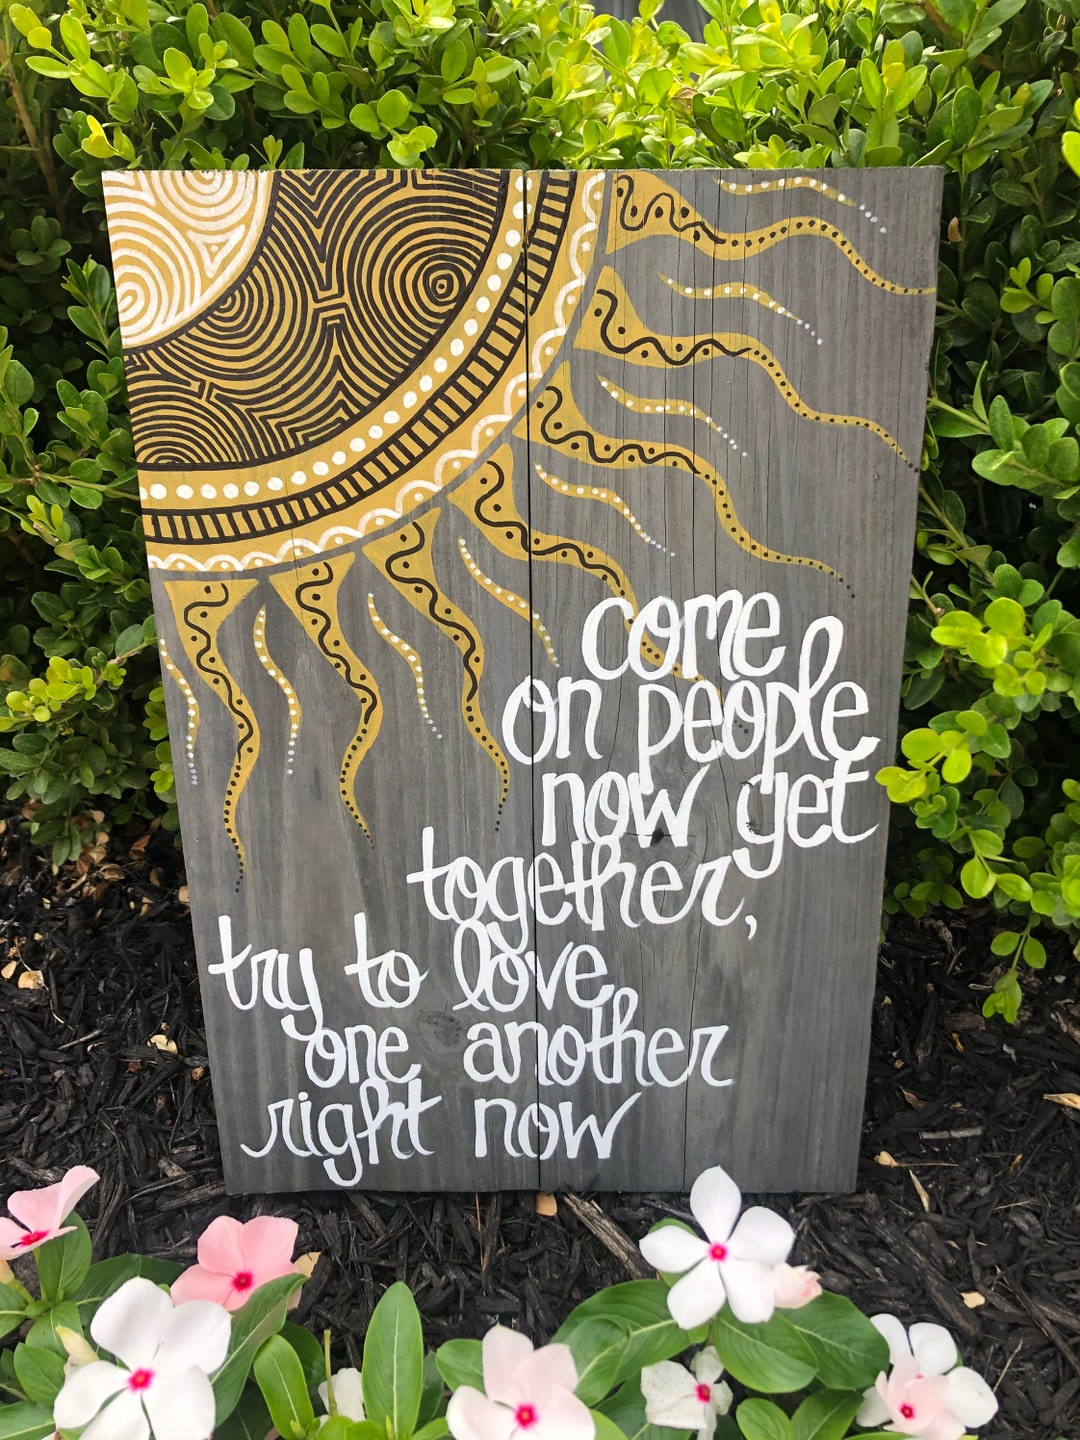 come
on people
now get
together,
try to love
one another
right now